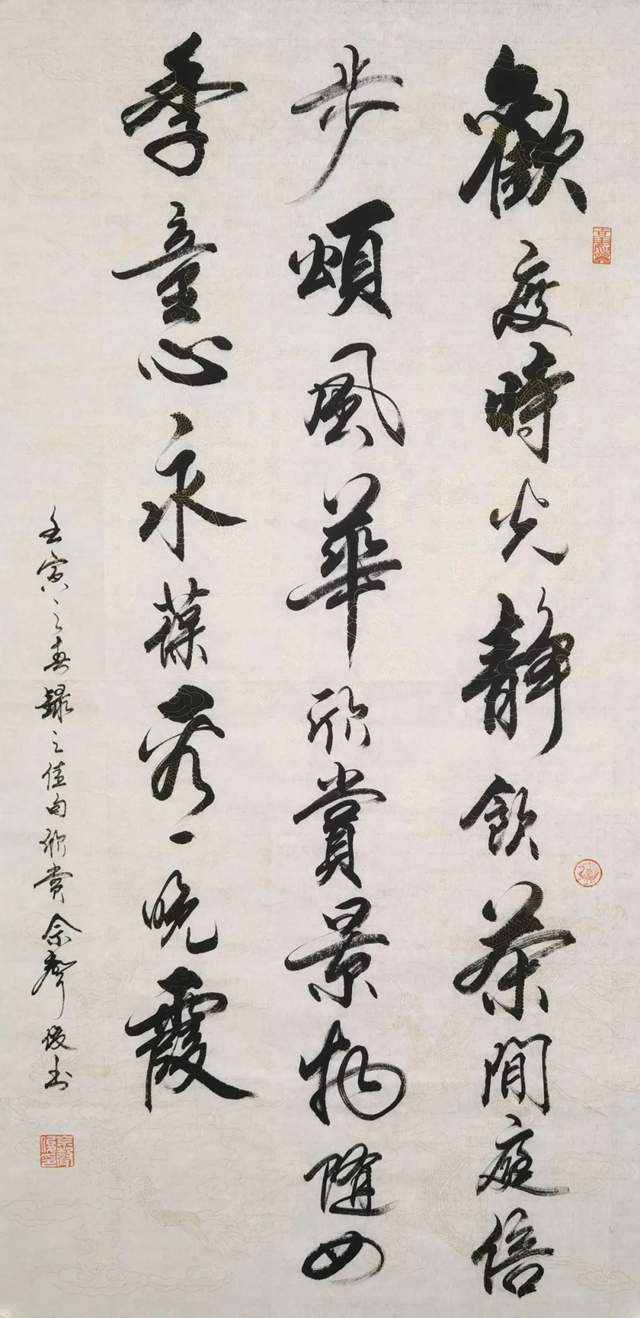 歡度時光靜飲茶閒庭信
步頌風華欣賞景物隨四
季童心永葆秀一晚霞
壬寅之春錄之佳句欣賞 余聲俊書